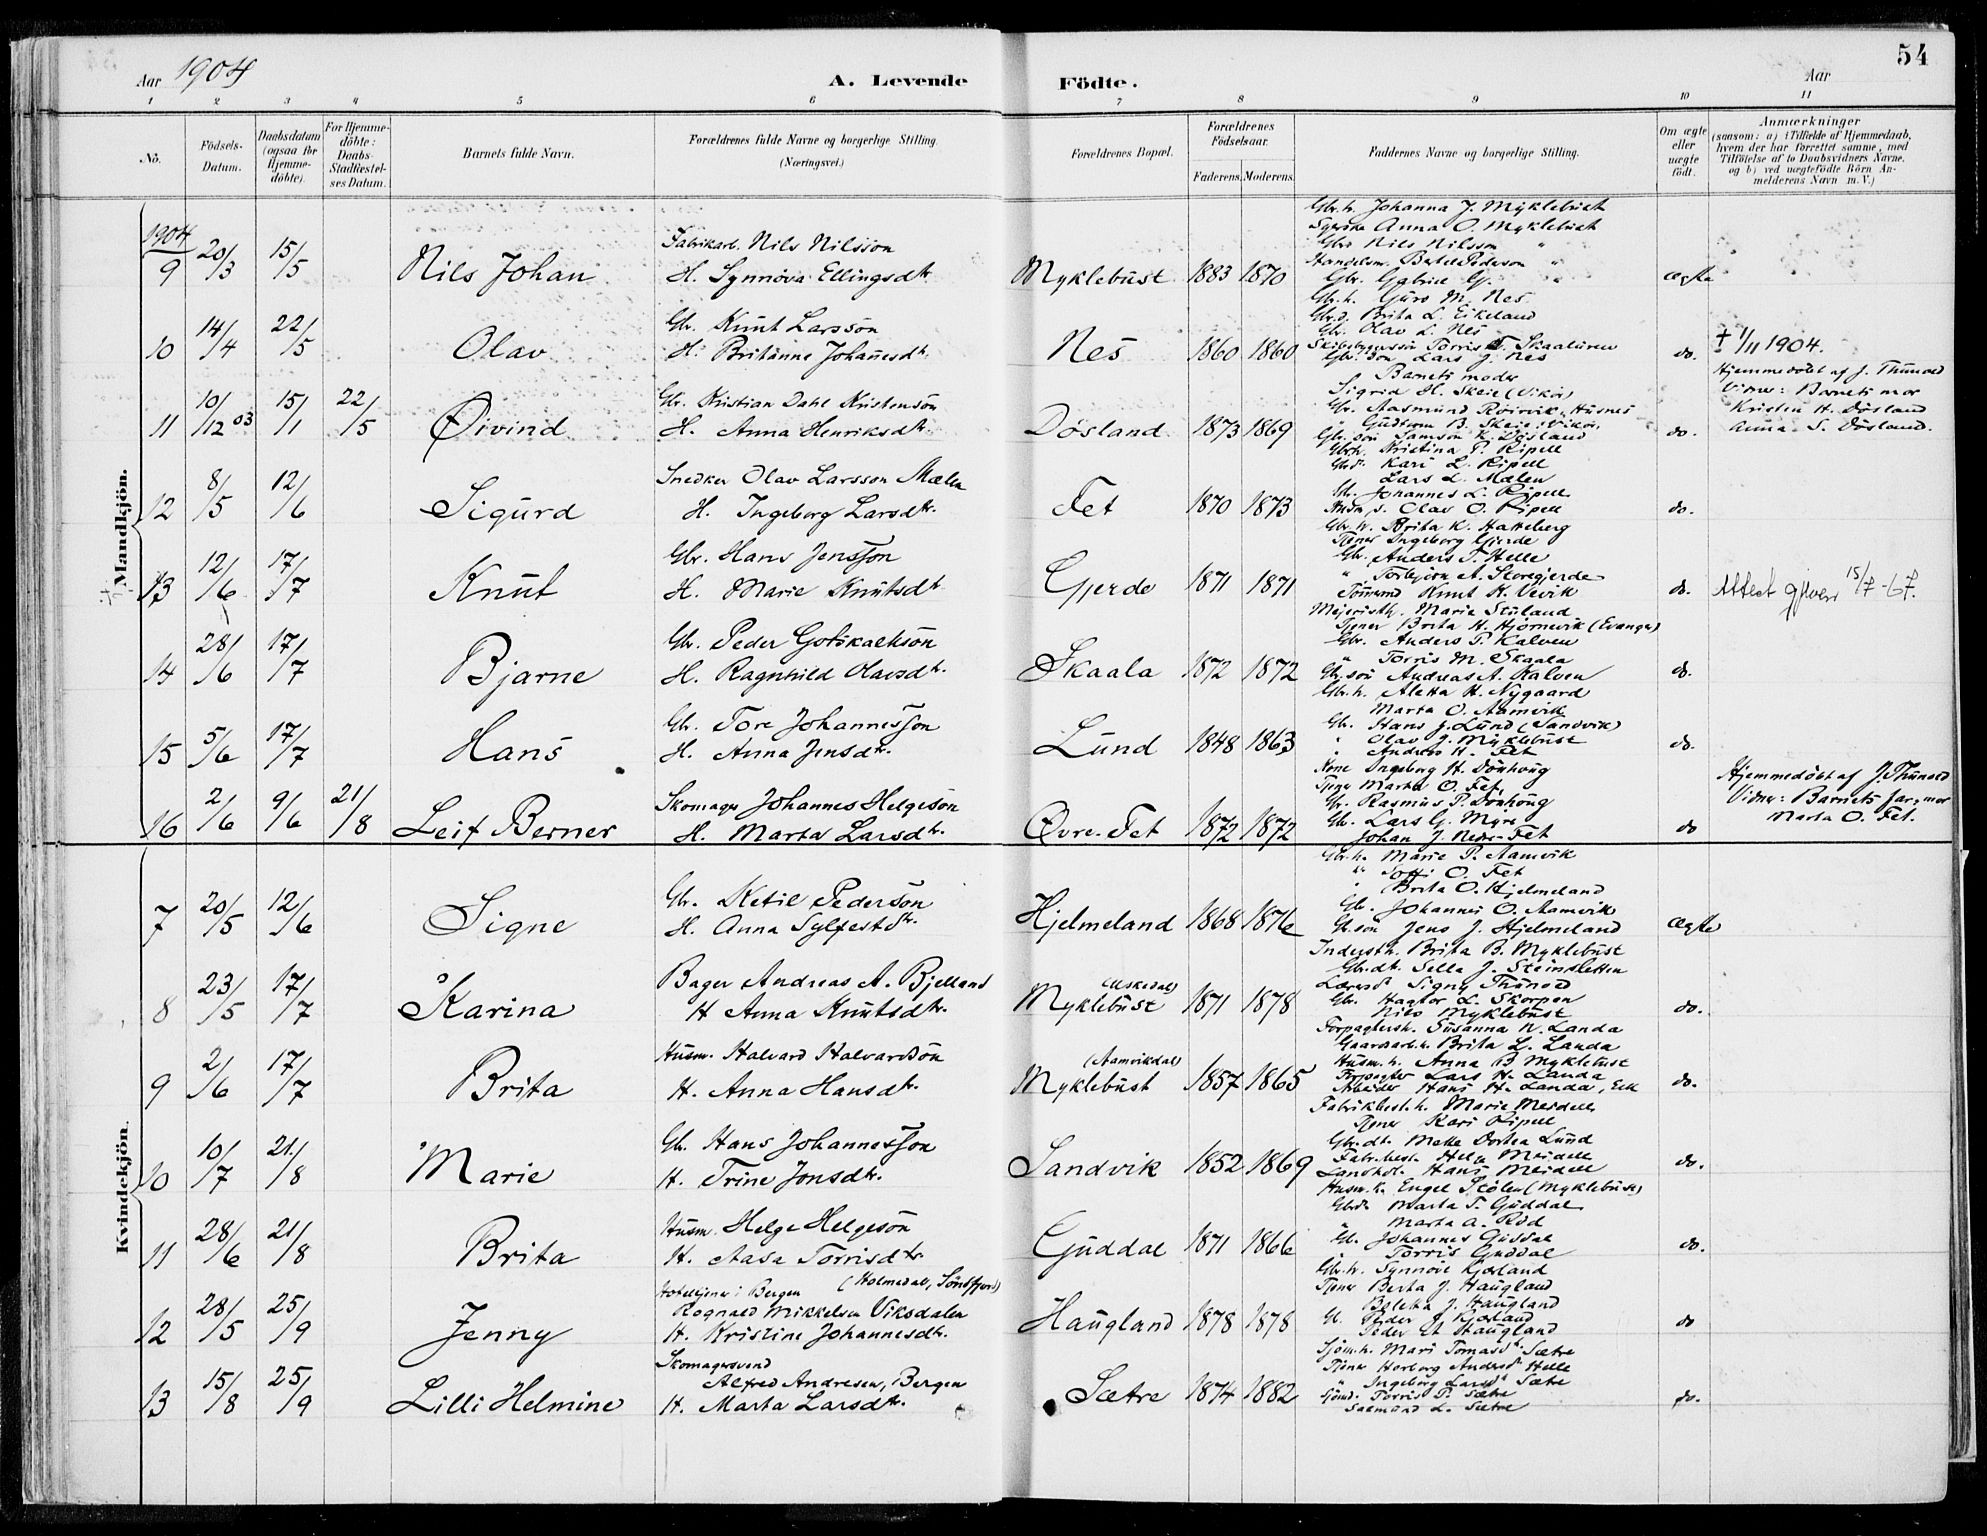 54
Aar 1904
A. Levende Födte.
Aar
1 2 3 4 5 6 7 8 9 10 11
No.
Födsels-Datum.
Daabsdatum (ogsaa for Hjemme-döbte).
For Hjemme-döbte: Daabs-Stadfestel-ses Datum.
Barnets fulde Navn.
Forældrenes fulde Navne og borgerlige Stilling. (Næringsvei.)
Forældrenes Bopæl.
Forældrenes Födselsaar.
Faderens. Moderens.
Faddernes Navne og borgerlige Stilling.
Om ægte eller uægte födt.
Anmærkninger
(saasom: a) i Tilfælde af Hjemmedaab, hvem der har forrettet samme, med Tilföielse af to Daabsvidners Navne, og b) ved uægtefödte Börn An-melderens Navn m. V.)
Mandkjön.
1904
9 20/3 15/5 Nils Johan
Fabrikarb. Nils Nilsson
H. Synnöva Ellingsdtr.
Myklebust 1883 1870
Gbr.h. Johanna J. Myklebust
Anna O. Myklebust
Nils Nilsson "
Handelsm. Bertel Pederson "
Gbr. Gabriel G. "
ægte
10 14/4 22/5 Olav
Gbr. Knut Larsson
H. Britanne Johanesdtr.
Nes 1860 1860
Gbr.h. Guro M. Nes
Gbr.d. Brita L. Eikeland
Gbr. Olav L. Nes
Torris T. Skaaluren
Gbr. søn Lars J. Nes
do.
† 1/11 1904.
11 10/12 03 15/1 22/5 Øivind
Gbr. Kristian Dahl Kristensön
H. Anna Henriksdtr.
Døsland 1873 1869
Barnets moder
Sigrid H. Skeie (Vikör)
Gbr. Aasmund Röirvik, Husnes
" Gudtorm B. Skeie, Vikör
Gbr. søn Samson K. Døsland
do.
Hjemmedöbt af J. Thunold
Vidner: Barnets mor
Kristen H. Døsland
Anna S. Døsland.
12 8/5 12/6 Sigurd
Snedker Olav Larsson Mælen
H. Ingeborg Larsdtr.
Fet 1870 1873
Gbr.h. Kristina P. Ripell
Gbr.d. Kari L. Ripell
Lars L. Mælen
Gbr. Johannes L. Ripell
Olav O. Ripell
do.
13 12/6 17/7 Knut
Gbr. Hans Jensson
H. Marie Knutsdtr.
Gjerde 1871 1871
Gbr.h. Brita K. Hatteberg
Tjener Ingeborg Gjerde
Gbr. Anders T. Helle
" Torbjörn A. Storegjerde
Tömmerm. Knut K. Vevik
do.
Attest gitven 15/7-67.
14 28/6 17/7 Bjarne
Gbr. Peder Gotskalkson
H. Ragnhild Olavsdtr.
Skaala 1872 1872
Mejeristh. Marie Stuland
Tjener Brita H. Hjörnevik (Evanger)
Gbr. Anders P. Kalven
" Torris M. Skaala
Gbr.søn Andreas A. Kalven
do.
15 5/6 17/7 Hans
Gbr. Tore Johannesson
H. Anna Jensdtr.
Lund 1848 1863
Gbr.h. Aletta H. Nygaard
Marta O. Aamvik
Gbr. Hans J. Lund (Sandvik)
" Olav J. Myklebust
" Andreas H. Fet
do.
16 2/6 9/6 21/8 Leif Berner
Skomager Johannes Helgeson
H. Marta Larsdtr.
Øvre-Fet 1872 1872
Kone Ingeborg H. Dönhaug
Tjener Marta O. Fet,
Gbr. Rasmus P. Dönhaug
Gbr. Lars G. Myre
Johan J. Nedre-Fet
do
Hjemmedöbt af J. Thunold
Vidner: Barnets far, mor
Marta O. Fet.
Kvindekjön.
7 20/5 12/6 Signe
Gbr. Ketil Pederson
H. Anna Sylfestdtr.
Hjelmeland 1868 1876
Gbr.h. Marie P. Aamvik
" O. Fet
" Brita O. Hjelmeland
Gbr. Johannes O. Aamvik
Gbr. søn Jens J. Hjelmeland
ægte
8 23/5 17/7 Karina
Bager Andreas A. Bjelland
H Anna Knutsdtr.
Myklebust (Uskedal) 1871 1878
Inderstk. Brita B. Myklebust
Gbr.dt. Sella J. Steinsletten
Signy Thunold
Gbr. Haktor L. Skorpen
Nils Myklebust
do.
9 2/6 17/7 Brita
Husm. Halvard Halvardson
H. Anna Hansdtr.
Myklebust (Aamvikdal) 1857 1865
Forpagtersk. Susanna N. Landa
Gaardsarb.h. Brita L. Landa
Husm.h. Anna B. Myklebust
Forpagter Lars H. Landa
Arbeider Hans H. Landa,
do.
10 10/7 21/8 Marie
Gbr. Hans Johannesson
H. Trine Jonsdtr.
Sandvik 1852 1869
Fabrikbest.h. Marie Meidell
Tjener Kari Ripell
Gbr.dt. Mette Dortea Lund
Fabr.best. Helge Meidell
Hans Meidell
do.
11 28/6 21/8 Brita
Husm. Helge Helgeson
H. Aasa Torrisdtr.
Guddal 1871 1866
Husm.k. Engel Stölen (Myklebust)
Gbrd. Marta T. Guddal
" Marta A. Röd
Gbr. Johannes Guddal
" Torris Guddal
do.
12 28/5 25/9 Jenny
Hoteltjener i Bergen (Holmedal, Söndfjord)
Rognald Mikkelsen Viksdalen
H. Kristine Johannesdtr.
Haugland 1878 1878
Gbr.h. Synnöve Kjærland
Tjener Berta J. Haugland
Boletta J. Haugland
G. Peder J. Kjærland
Peder Haugland
do
13 15/8 25/9 Lilli Helmine
Skomagersvend
Alfred Andresen, Bergen
H. Marta Larsdtr.
Sætre 1874 1882
Sjöm.h. Mari Tomasdtr. Sætre
Tjener Herborg Andersdtr. Helle
" Ingeborg Larsdtr. Sætre
Sjöm. Torris P. Sætre
Salmund L. Sætre
do.